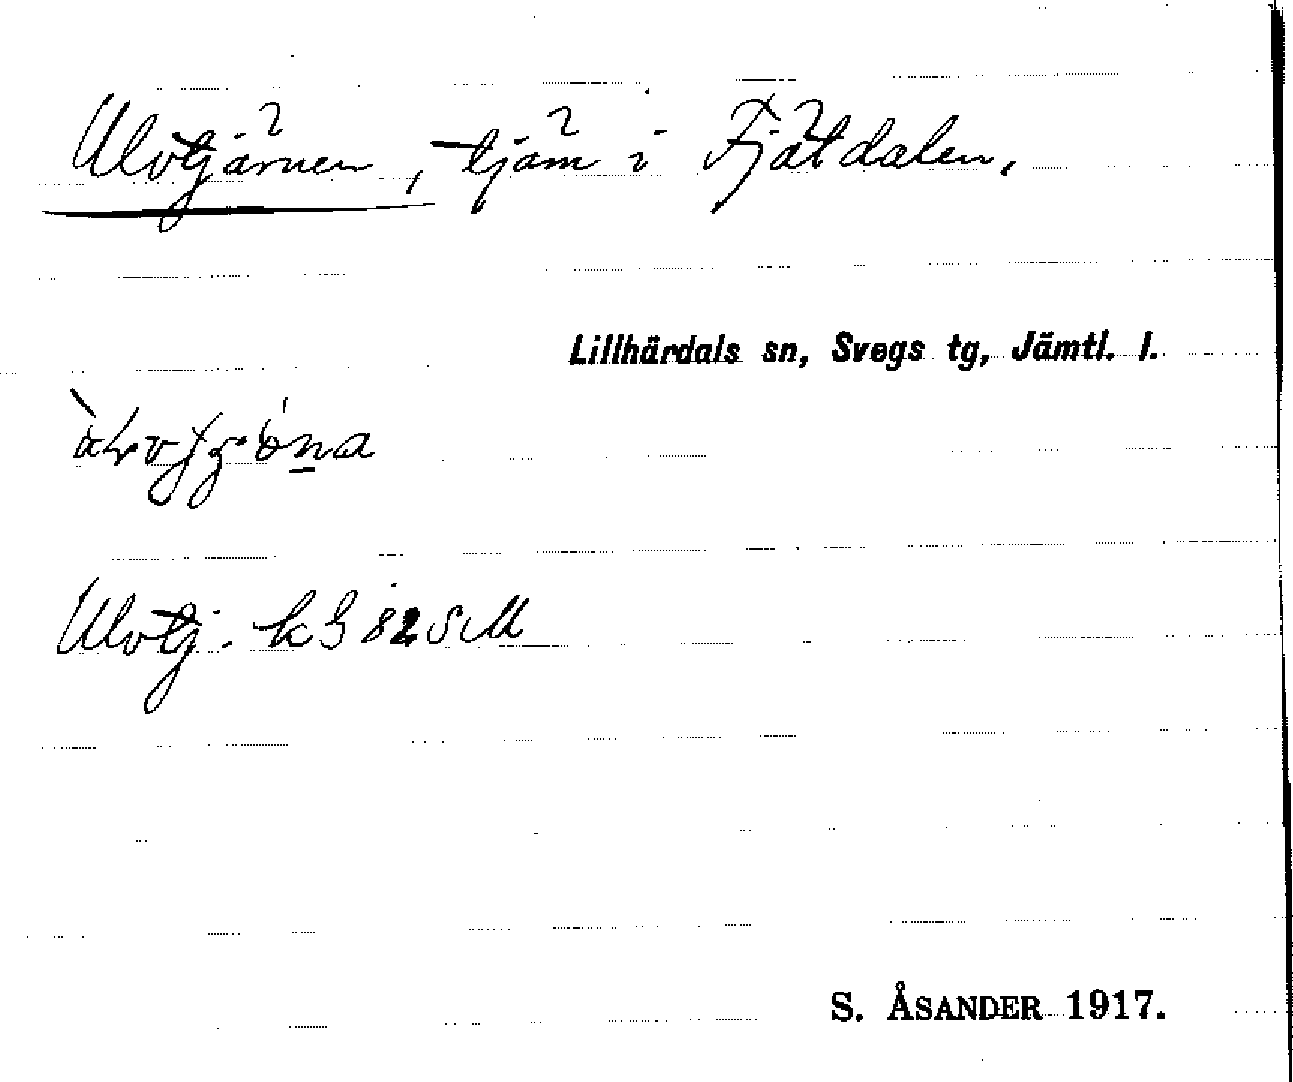 Ulvtjärnen, tjärn i Fjätdalen.
Lillhärdals sn, Svegs tg, Jämtl. l.
Ulvtj. kG 82 SM
S. ÅSANDER 1917.